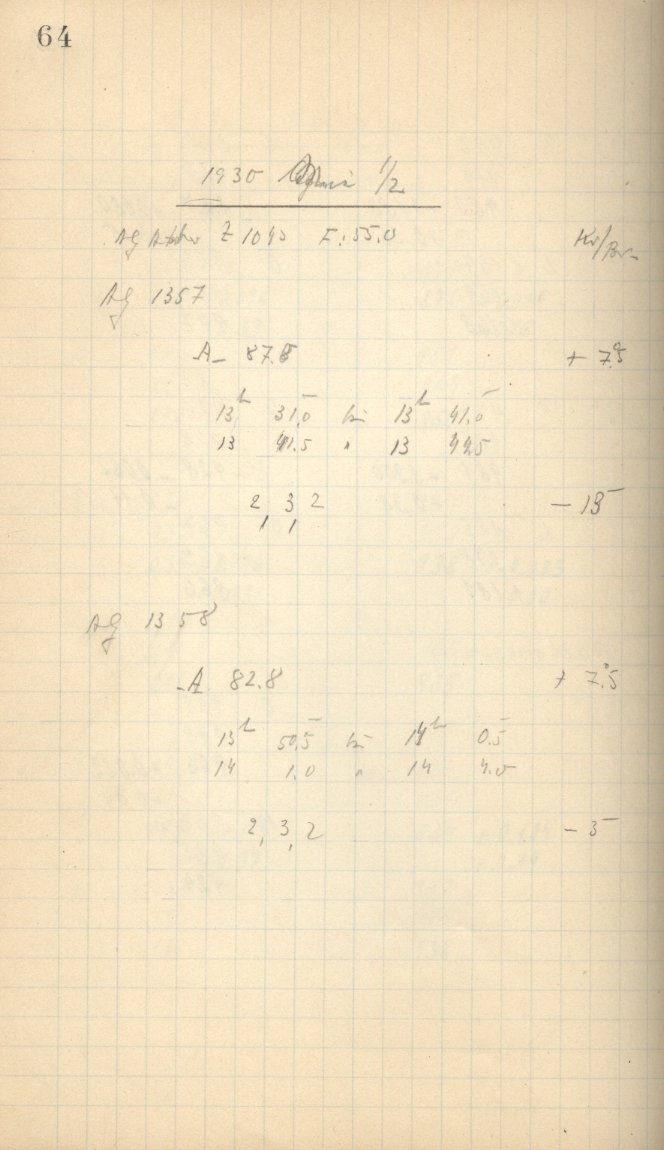 64
1930 1/2
AG Z 1043 F: 55.0 Kr/Br.
AG 1357
A 87.8 + 7.5
13h 31.0 bis 13h 41.0
13 41.5 " 13 44.5
2, 3, 2 - 13
AG 1358
A 82.8 + 7°.5
13h 50.5 bis 14h 0.5
14 1.0 " 14 4.0
2, 3, 2 - 3